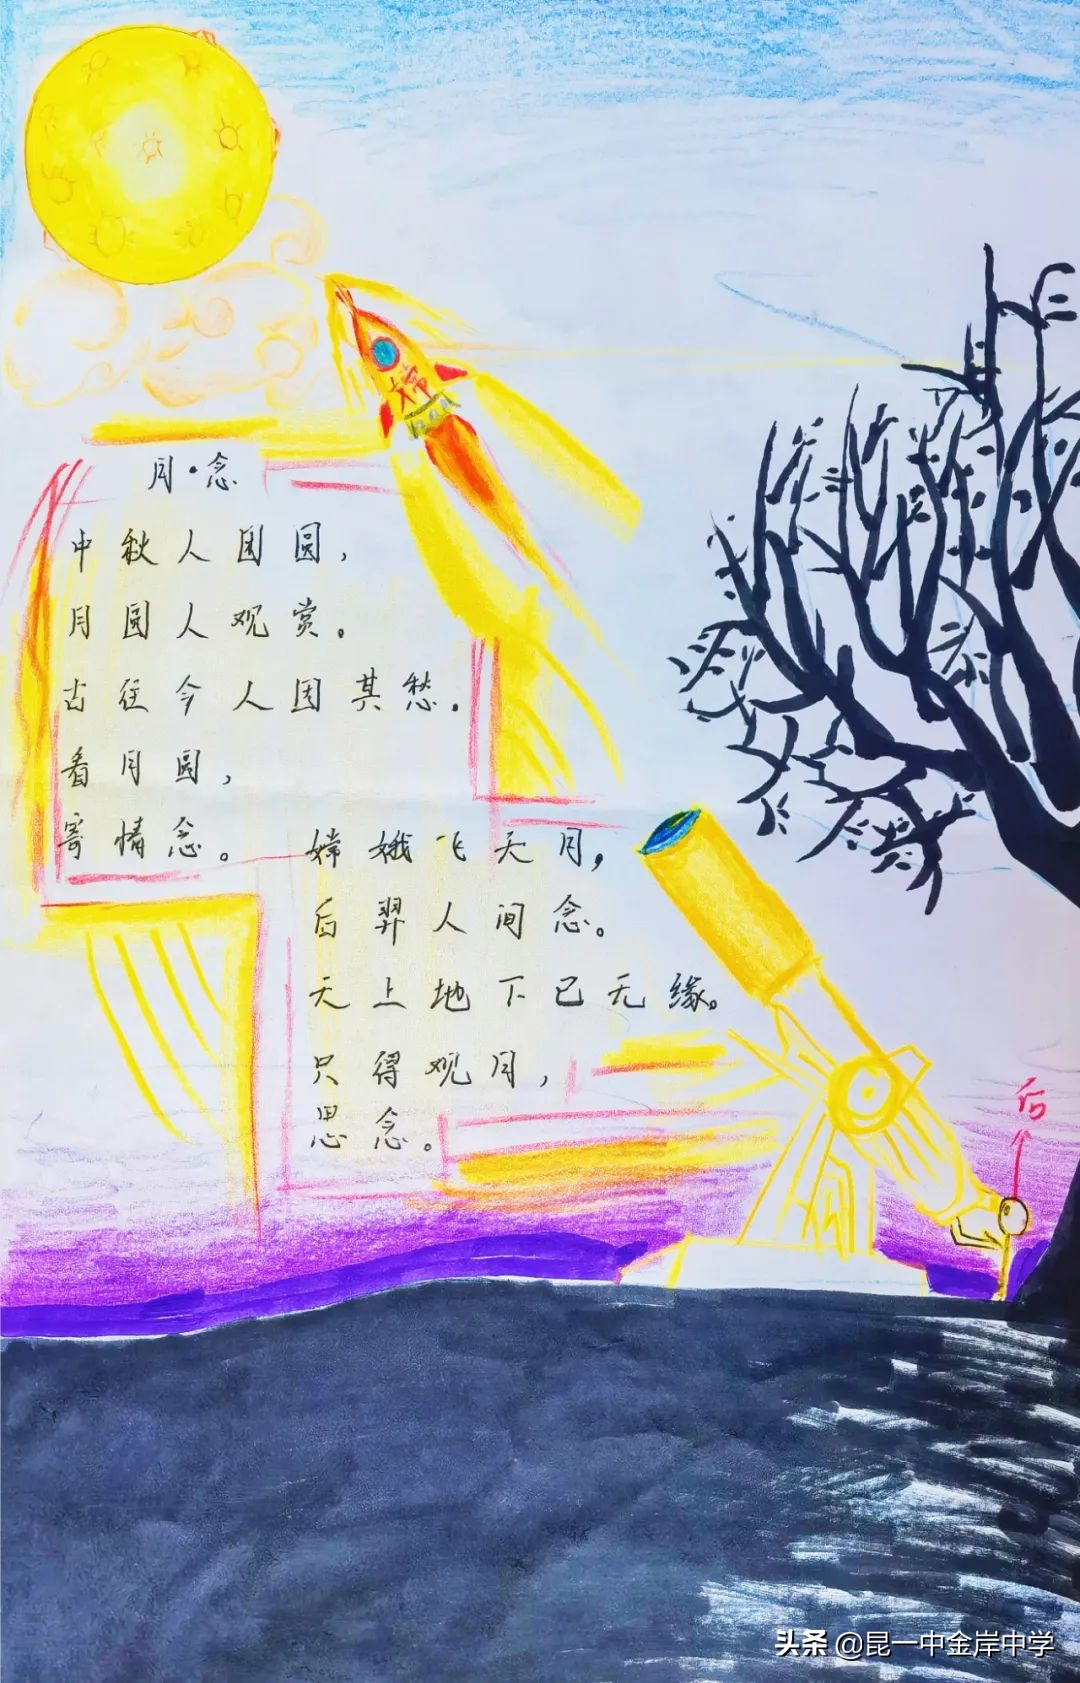 月·念
中秋人团圆，
月圆人观赏。
古往今人因其愁。
看月圆，
寄情念。
嫦娥飞天月，
后羿人间念。
天上地下已无缘。
只得观月，
思念。
后
头条 @昆一中金岸中学